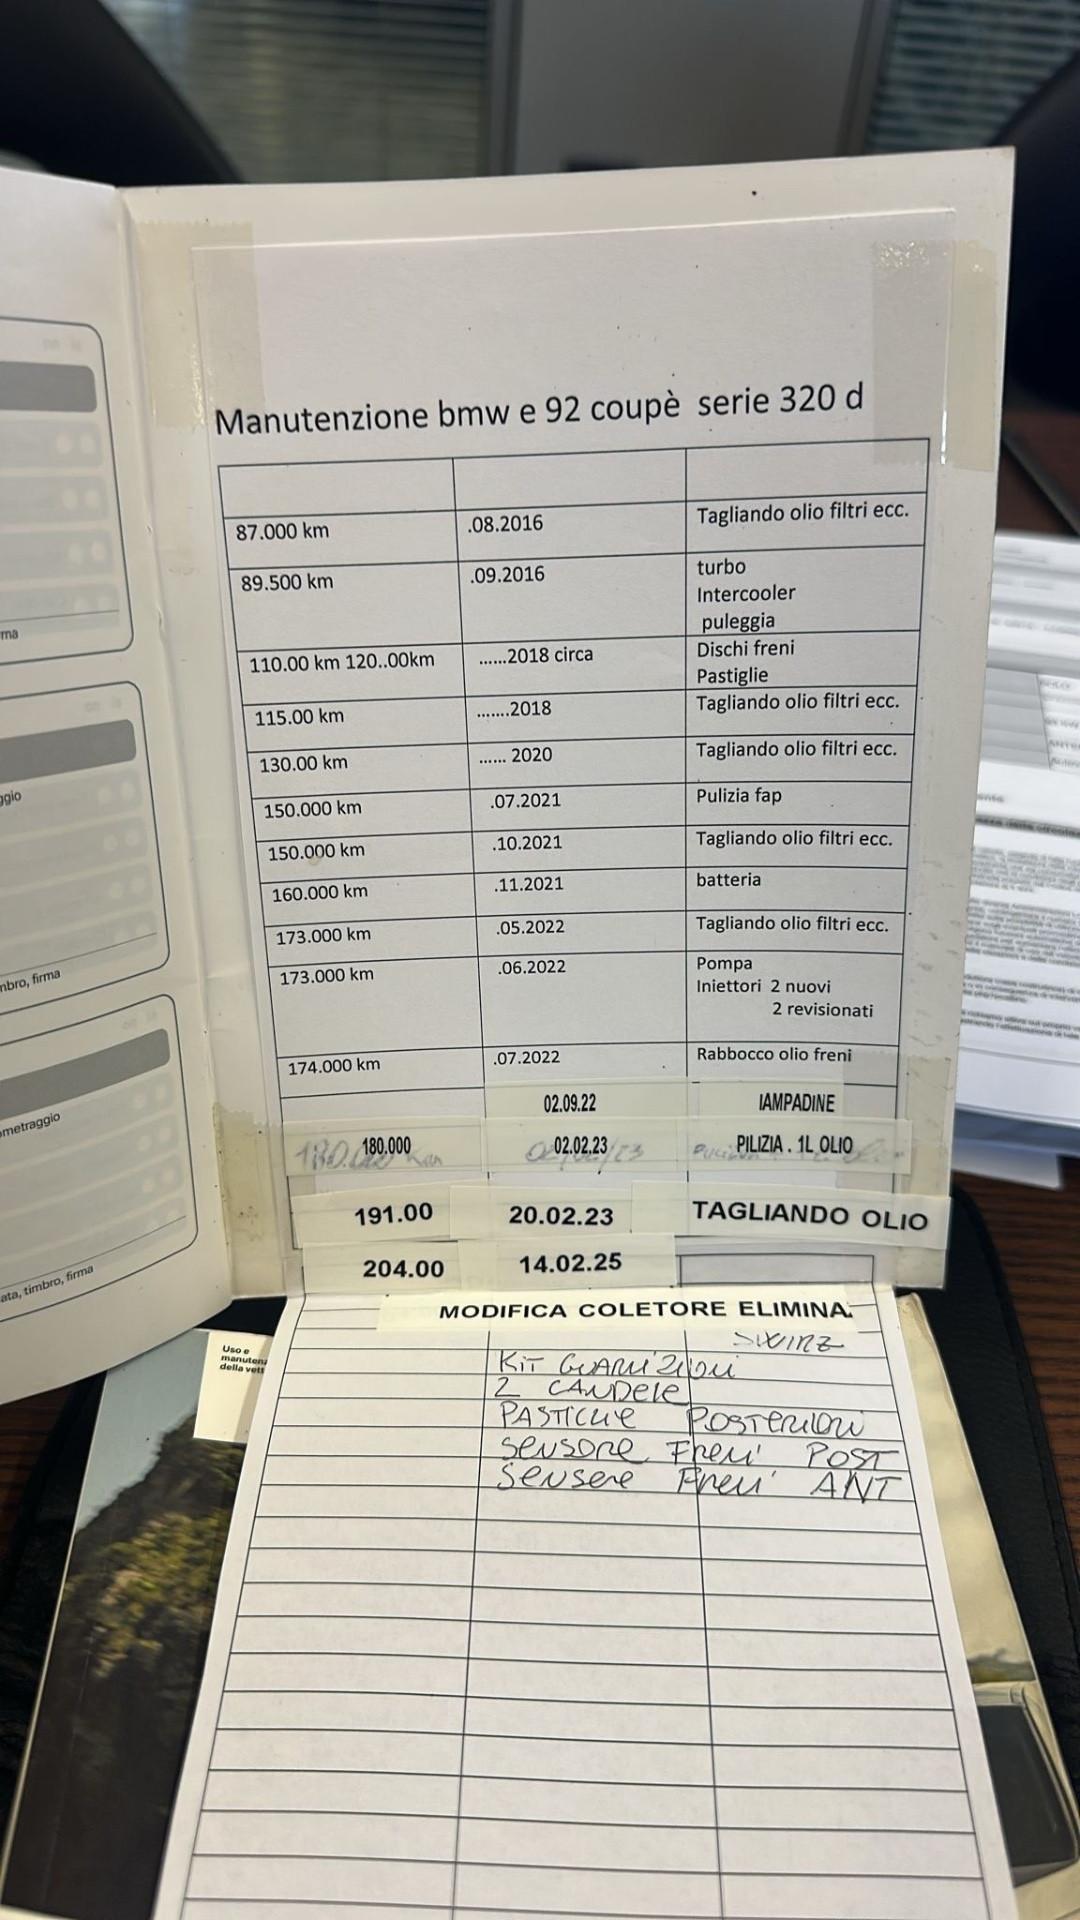 Manutenzione bmw e 92 coupè serie 320 d
87.000 km .08.2016 Tagliando olio filtri ecc.
89.500 km .09.2016 turbo
Intercooler
puleggia
110.00 km 120..00km ......2018 circa Dischi freni
Pastiglie
115.00 km .......2018 Tagliando olio filtri ecc.
130.00 km ...... 2020 Tagliando olio filtri ecc.
150.000 km .07.2021 Pulizia fap
150.000 km .10.2021 Tagliando olio filtri ecc.
160.000 km .11.2021 batteria
173.000 km .05.2022 Tagliando olio filtri ecc.
173.000 km .06.2022 Pompa
Iniettori 2 nuovi
2 revisionati
174.000 km .07.2022 Rabbocco olio freni
02.09.22 lAMPADINE
180.000 02.02.23 PILIZIA . 1L OLIO
191.00 20.02.23 TAGLIANDO OLIO
204.00 14.02.25
MODIFICA COLETORE ELIMINA.
KIT GUARNIZIONI
2 CANDELE
PASTICHE POSTERIORI
SENSORE FRENI POST
SENSERE FRENI ANT
ggio
mbro, firma
ometraggio
ata, timbro, firma
Uso e
manuten
della vett